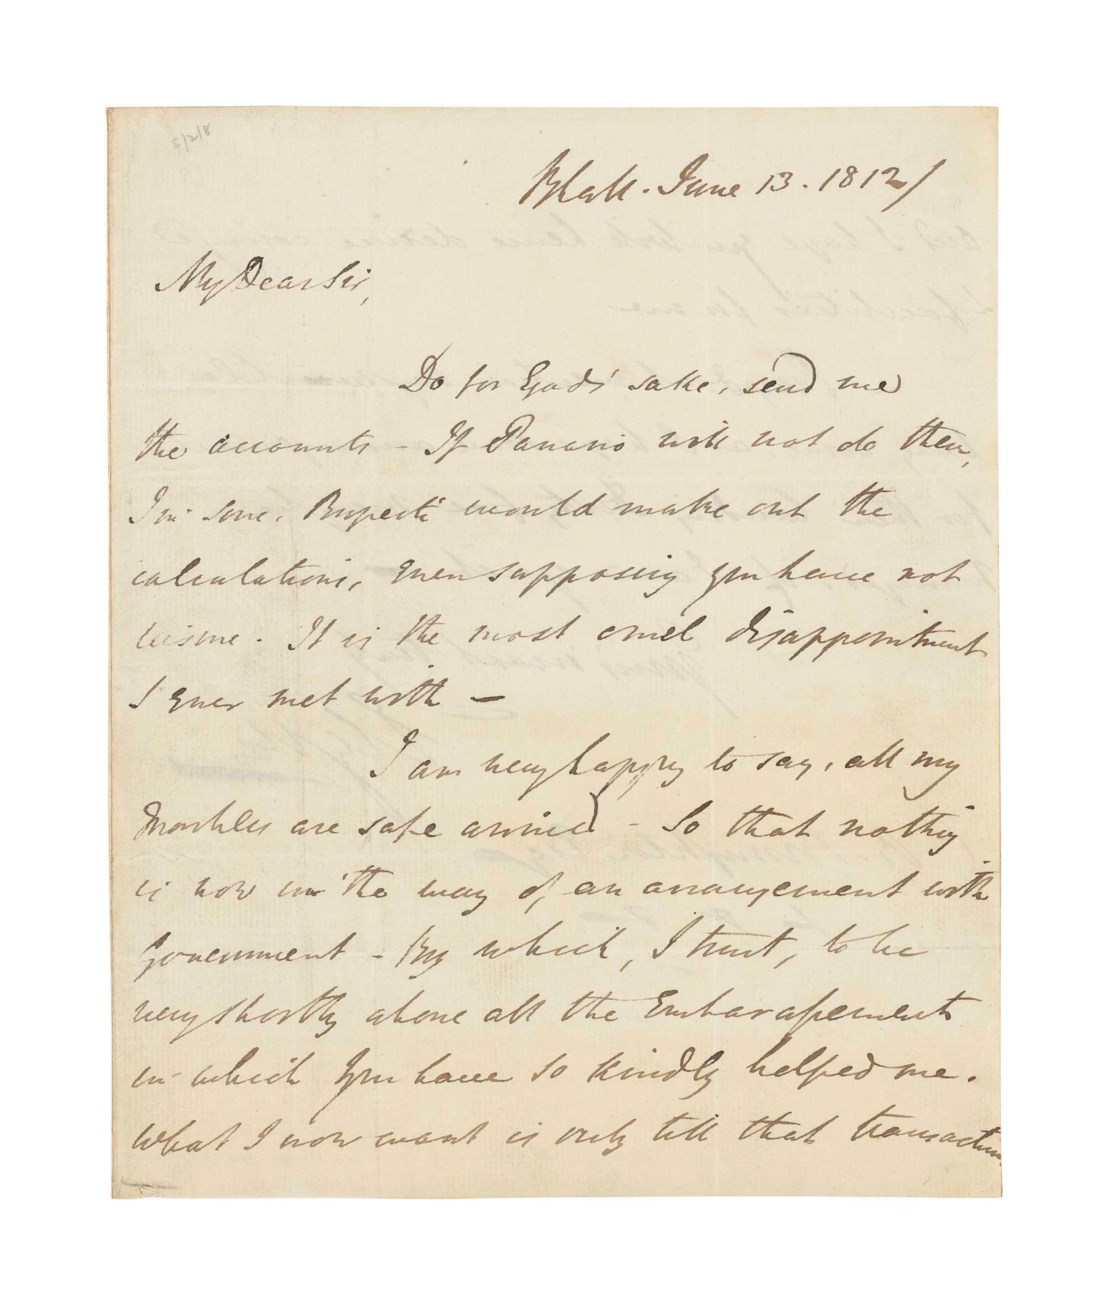 June 13. 1812/
My Dear Sir,
Do for Gods' sake, send me
the accounts - If Panario will not do them,
I'm sure, Ruperti would make out the
calculations, even supposing you have not
leisure. It is the most cruel disappointment
I ever met with -
I am very happy to say, all my
Marbles are safe arrived - So that nothing
is now in the way of, an arrangement with
Government - By which, I trust, to be
very shortly above all the Embarassements
in which you have so kindly helped me.
What I now want is only till that transaction